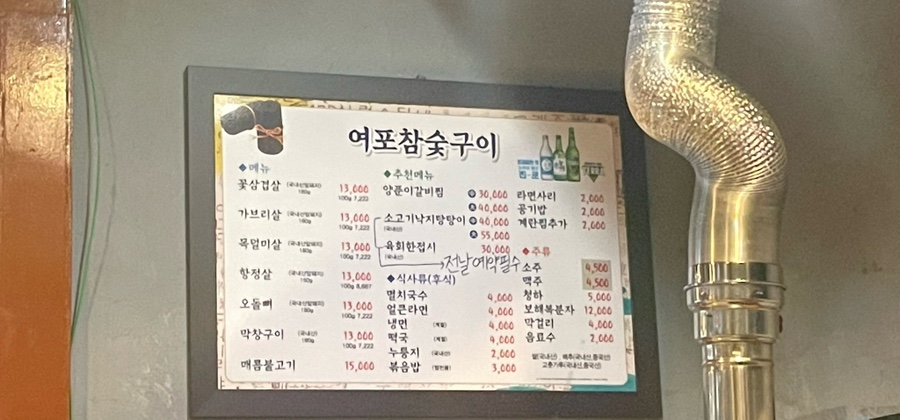 여포참숯구이
◆메뉴
꽃삼겹살 (국내산암돼지) 180g 13,000
100g 7,222
가브리살 (국내산암돼지) 180g 13,000
100g 7,222
목덜미살 (국내산암돼지) 180g 13,000
100g 7,222
항정살 (국내산암돼지) 150g 13,000
100g 8,667
오돌뼈 (국내산암돼지) 180g 13,000
100g 7,222
막창구이 (국내산) 180g 13,000
100g 7,222
매콤불고기 15,000
◆추천메뉴
양푼이갈비찜 중 30,000
대 40,000
소고기낙지탕탕이 중 40,000
(국내산) 대 55,000
육회한접시 30,000
(국내산)
전날예약필수
◆식사류(후식)
멸치국수 4,000
얼큰라면 4,000
냉면 (계절) 4,000
떡국 (계절) 4,000
누룽지 (국내산) 2,000
볶음밥 3,000
라면사리 2,000
공기밥 2,000
계란찜추가 2,000
◆주류
소주 4,500
맥주 4,500
청하 5,000
보해복분자 12,000
막걸리 4,000
음료수 2,000
쌀(국내산), 배추(국내산,중국산)
고춧가루(국내산,중국산)